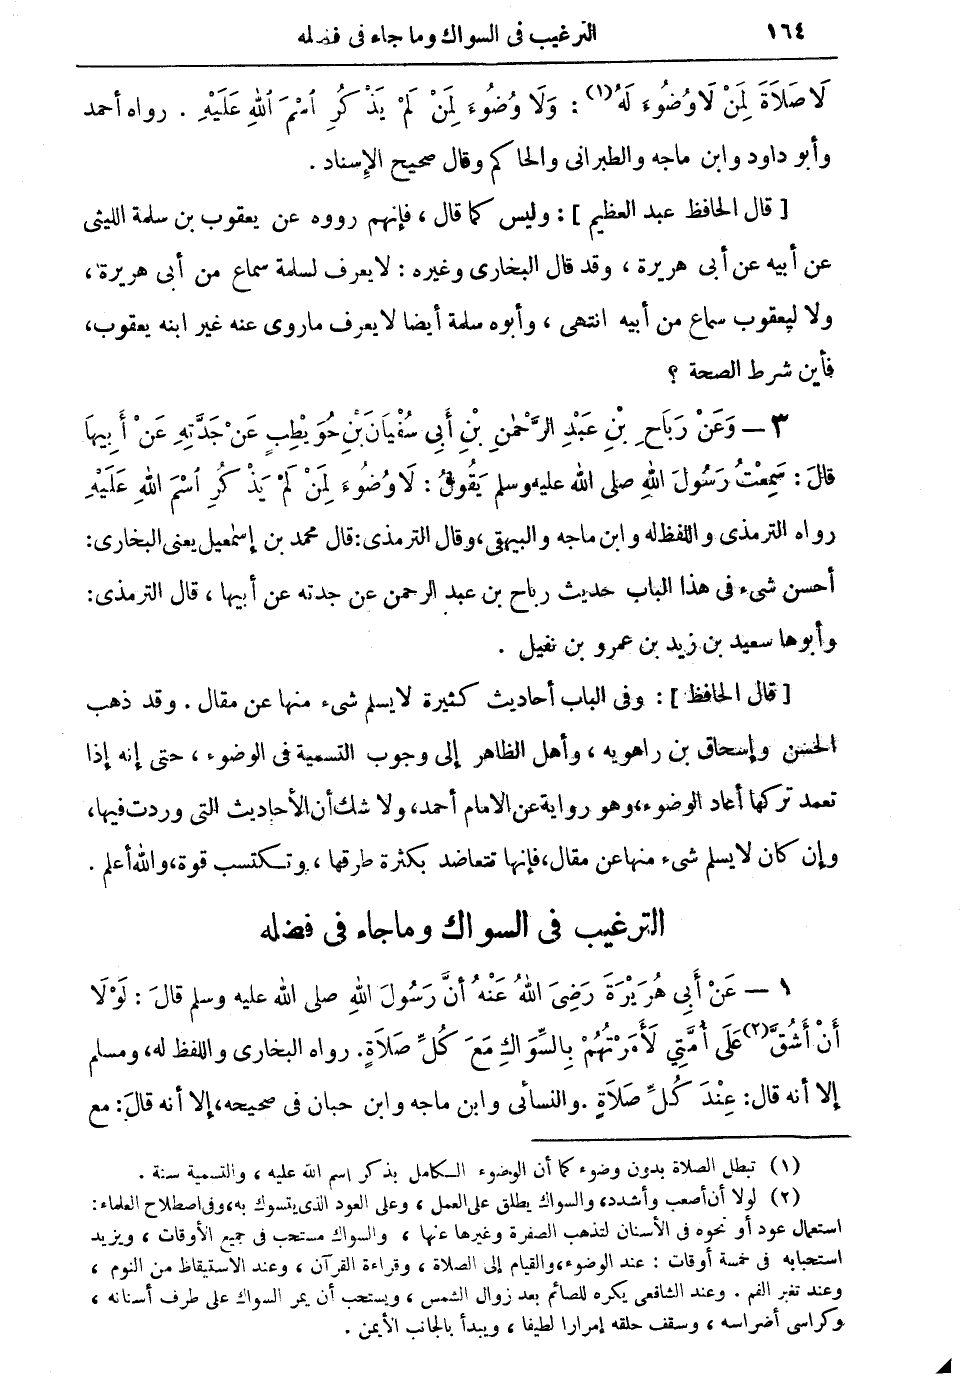 ١٦٤ الترغيب فى السواك وما جاء فى فضله
لَا صَلَاةَ لِمَنْ لَا وُضُوءَ لَهُ(١) : وَلَا وُضُوءَ لِمَنْ لَمْ يَذْكُرِ ٱسْمَ ٱللهِ عَلَيْهِ . رواه أحمد
وأبو داود وابن ماجه والطبرانى والحاكم وقال صحيح الإسناد .
[ قال الحافظ عبد العظيم ] : وليس كما قال ، فإنهم رووه عن يعقوب بن سلمة الليثى
عن أبيه عن أبى هريرة ، وقد قال البخارى وغيره : لا يعرف لسلمة سماع من أبى هريرة ،
ولا ليعقوب سماع من أبيه انتهى ، وأبوه سلمة أيضا لا يعرف ماروى عنه غير ابنه يعقوب،
فأين شرط الصحة ؟
٣ — وَعَنْ رَبَاحِ بْنِ عَبْدِ الرَّحْمٰنِ بْنِ أَبِي سُفْيَانَ بْنِ حُوَيْطِبٍ عَنْ جَدَّتِهِ عَنْ أَبِيهَا
قَالَ : سَمِعْتُ رَسُولَ اللهِ صلى الله عليه وسلم يَقُولُ : لَا وُضُوءَ لِمَنْ لَمْ يَذْكُرِ ٱسْمَ اللهِ عَلَيْهِ
رواه الترمذى واللفظ له وابن ماجه والبيهقى، وقال الترمذى: قال محمد بن إسمٰعيل يعنى البخارى:
أحسن شىء فى هذا الباب حديث رباح بن عبد الرحمن عن جدته عن أبيها ، قال الترمذى:
وأبوها سعيد بن زيد بن عمرو بن نفيل .
[ قال الحافظ ] : وفى الباب أحاديث كثيرة لا يسلم شىء منها عن مقال . وقد ذهب
الحسن وإسحاق بن راهويه ، وأهل الظاهر إلى وجوب التسمية فى الوضوء ، حتى إنه إذا
تعمد تركها أعاد الوضوء، وهو رواية عن الامام أحمد، ولا شك أن الأحاديث التى وردت فيها،
وإن كان لا يسلم شىء منها عن مقال، فإنها تتعاضد بكثرة طرقها ، وتكتسب قوة، والله أعلم .
الترغيب فى السواك وما جاء فى فضله
١ — عَنْ أَبِي هُرَيْرَةَ رَضِىَ اللهُ عَنْهُ أَنَّ رَسُولَ اللهِ صلى الله عليه وسلم قَالَ : لَوْلَا
أَنْ أَشُقَّ(٢) عَلَى أُمَّتِي لَأَمَرْتُهُمْ بِالسِّوَاكِ مَعَ كُلِّ صَلَاةٍ. رواه البخارى واللفظ له، ومسلم
إلا أنه قال: عِنْدَ كُلِّ صَلَاةٍ . والنسائى وابن ماجه وابن حبان فى صحيحه، إلا أنه قال: مع
(١) تبطل الصلاة بدون وضوء كما أن الوضوء الكامل بذكر اسم الله عليه ، والتسمية سنة .
(٢) لولا أن أصعب وأشدد، والسواك يطلق على العمل ، وعلى العود الذى يتسوك به، وفى اصطلاح العلماء:
استعمال عود أو نحوه فى الأسنان لتذهب الصفرة وغيرها عنها ، والسواك مستحب فى جميع الأوقات ، ويزيد
استحبابه فى خمسة أوقات : عند الوضوء، والقيام إلى الصلاة ، وقراءة القرآن ، وعند الاستيقاظ من النوم ،
وعند تغير الفم . وعند الشافعى يكره للصائم بعد زوال الشمس ، ويستحب أن يمر السواك على طرف أسنانه ،
وكراسى أضراسه ، وسقف حلقه إمرارا لطيفا ، ويبدأ بالجانب الأيمن .